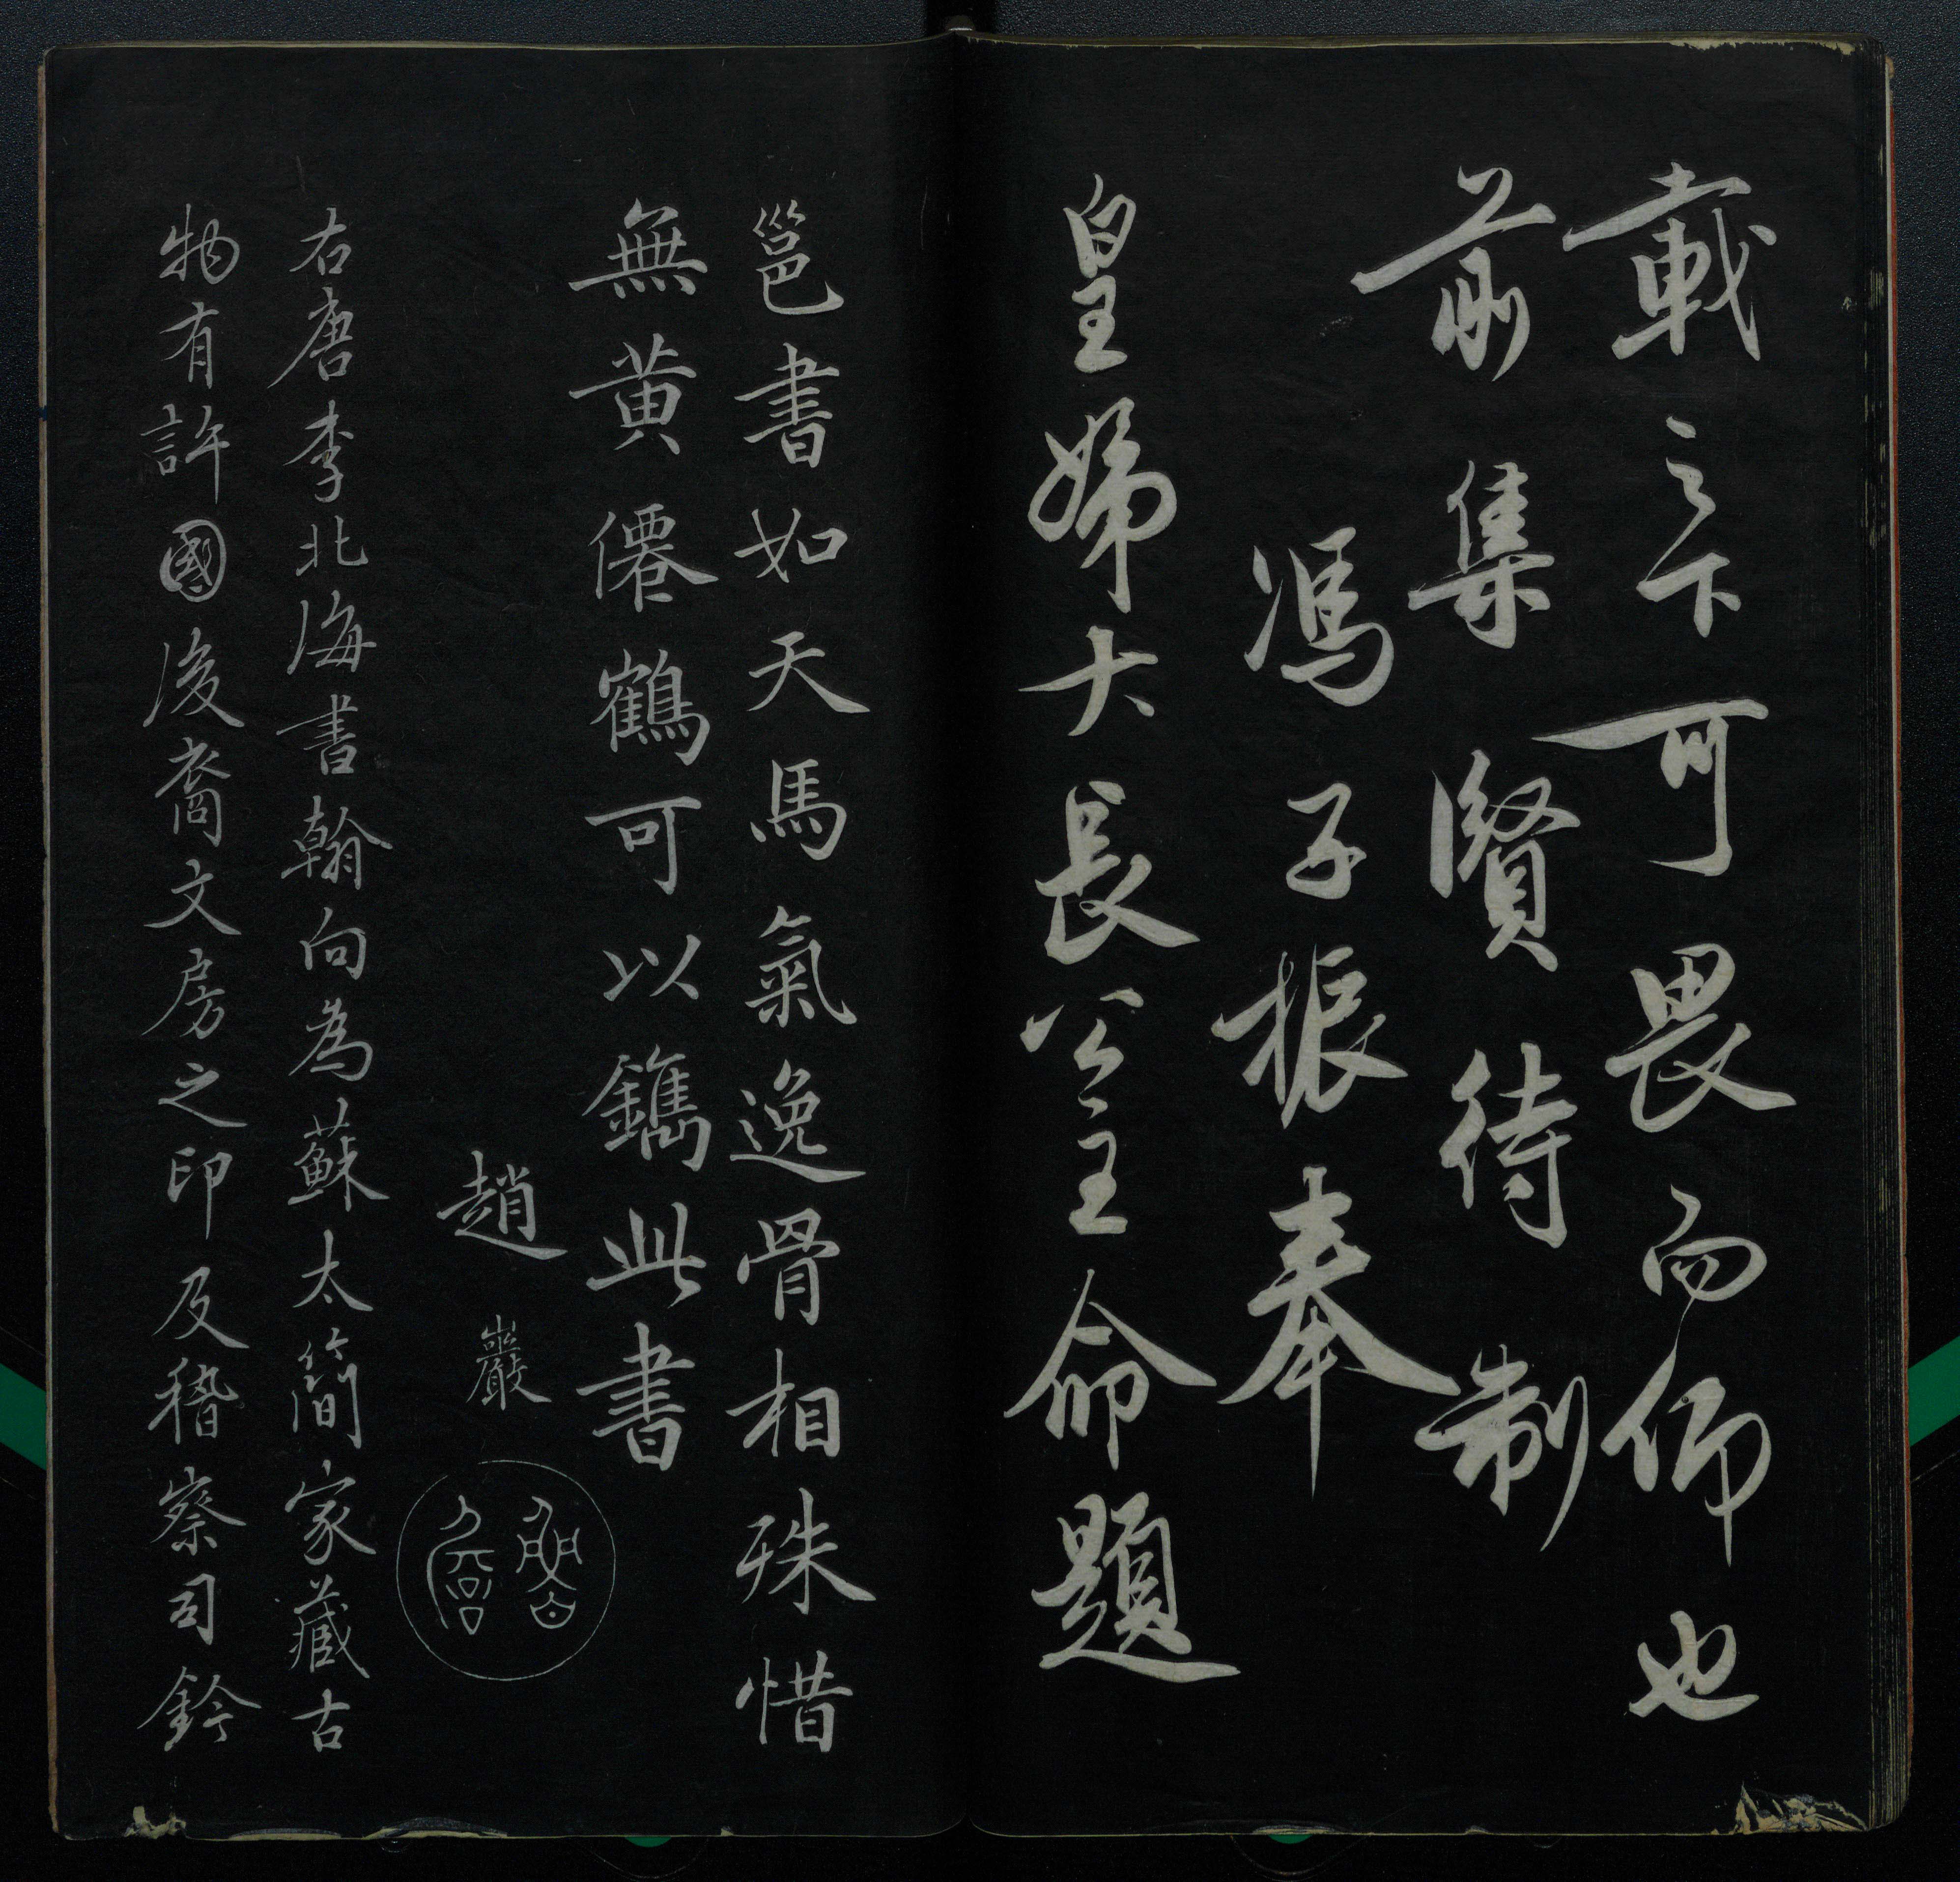 載之下可畏而仰也
前集賢待制
馮子振奉
皇姊大長公主命題
邕書如天馬氣逸骨相殊惜
無黄僊鶴可以鐫此書
趙巖
右唐李北海書翰向為蘇太簡家藏古
物有許國後裔文房之印及稽察司鈐